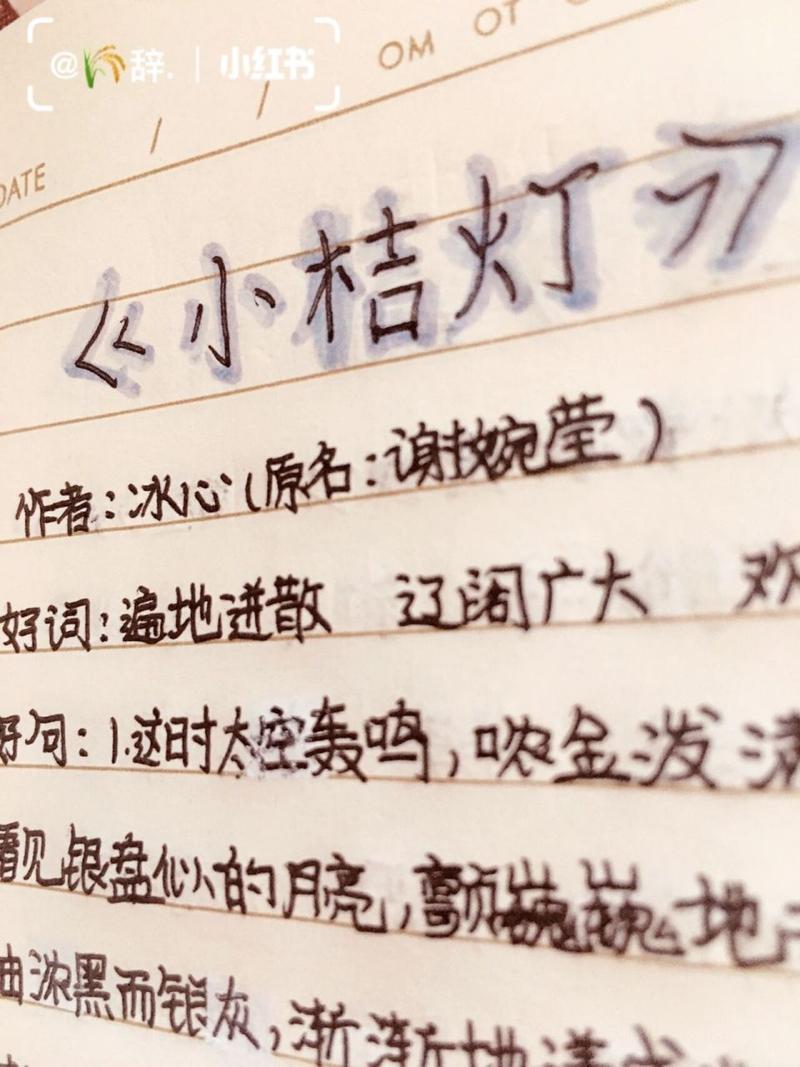 @🌾辞. | 小红书
OM OT
DATE / /
《小桔灯》
作者:冰心(原名:谢婉莹)
好词:遍地迸散 辽阔广大 欢
好句:1.这时太空轰鸣,喷金泼
看见银盘似的月亮,颤巍巍地
由浓黑而银灰,渐渐地